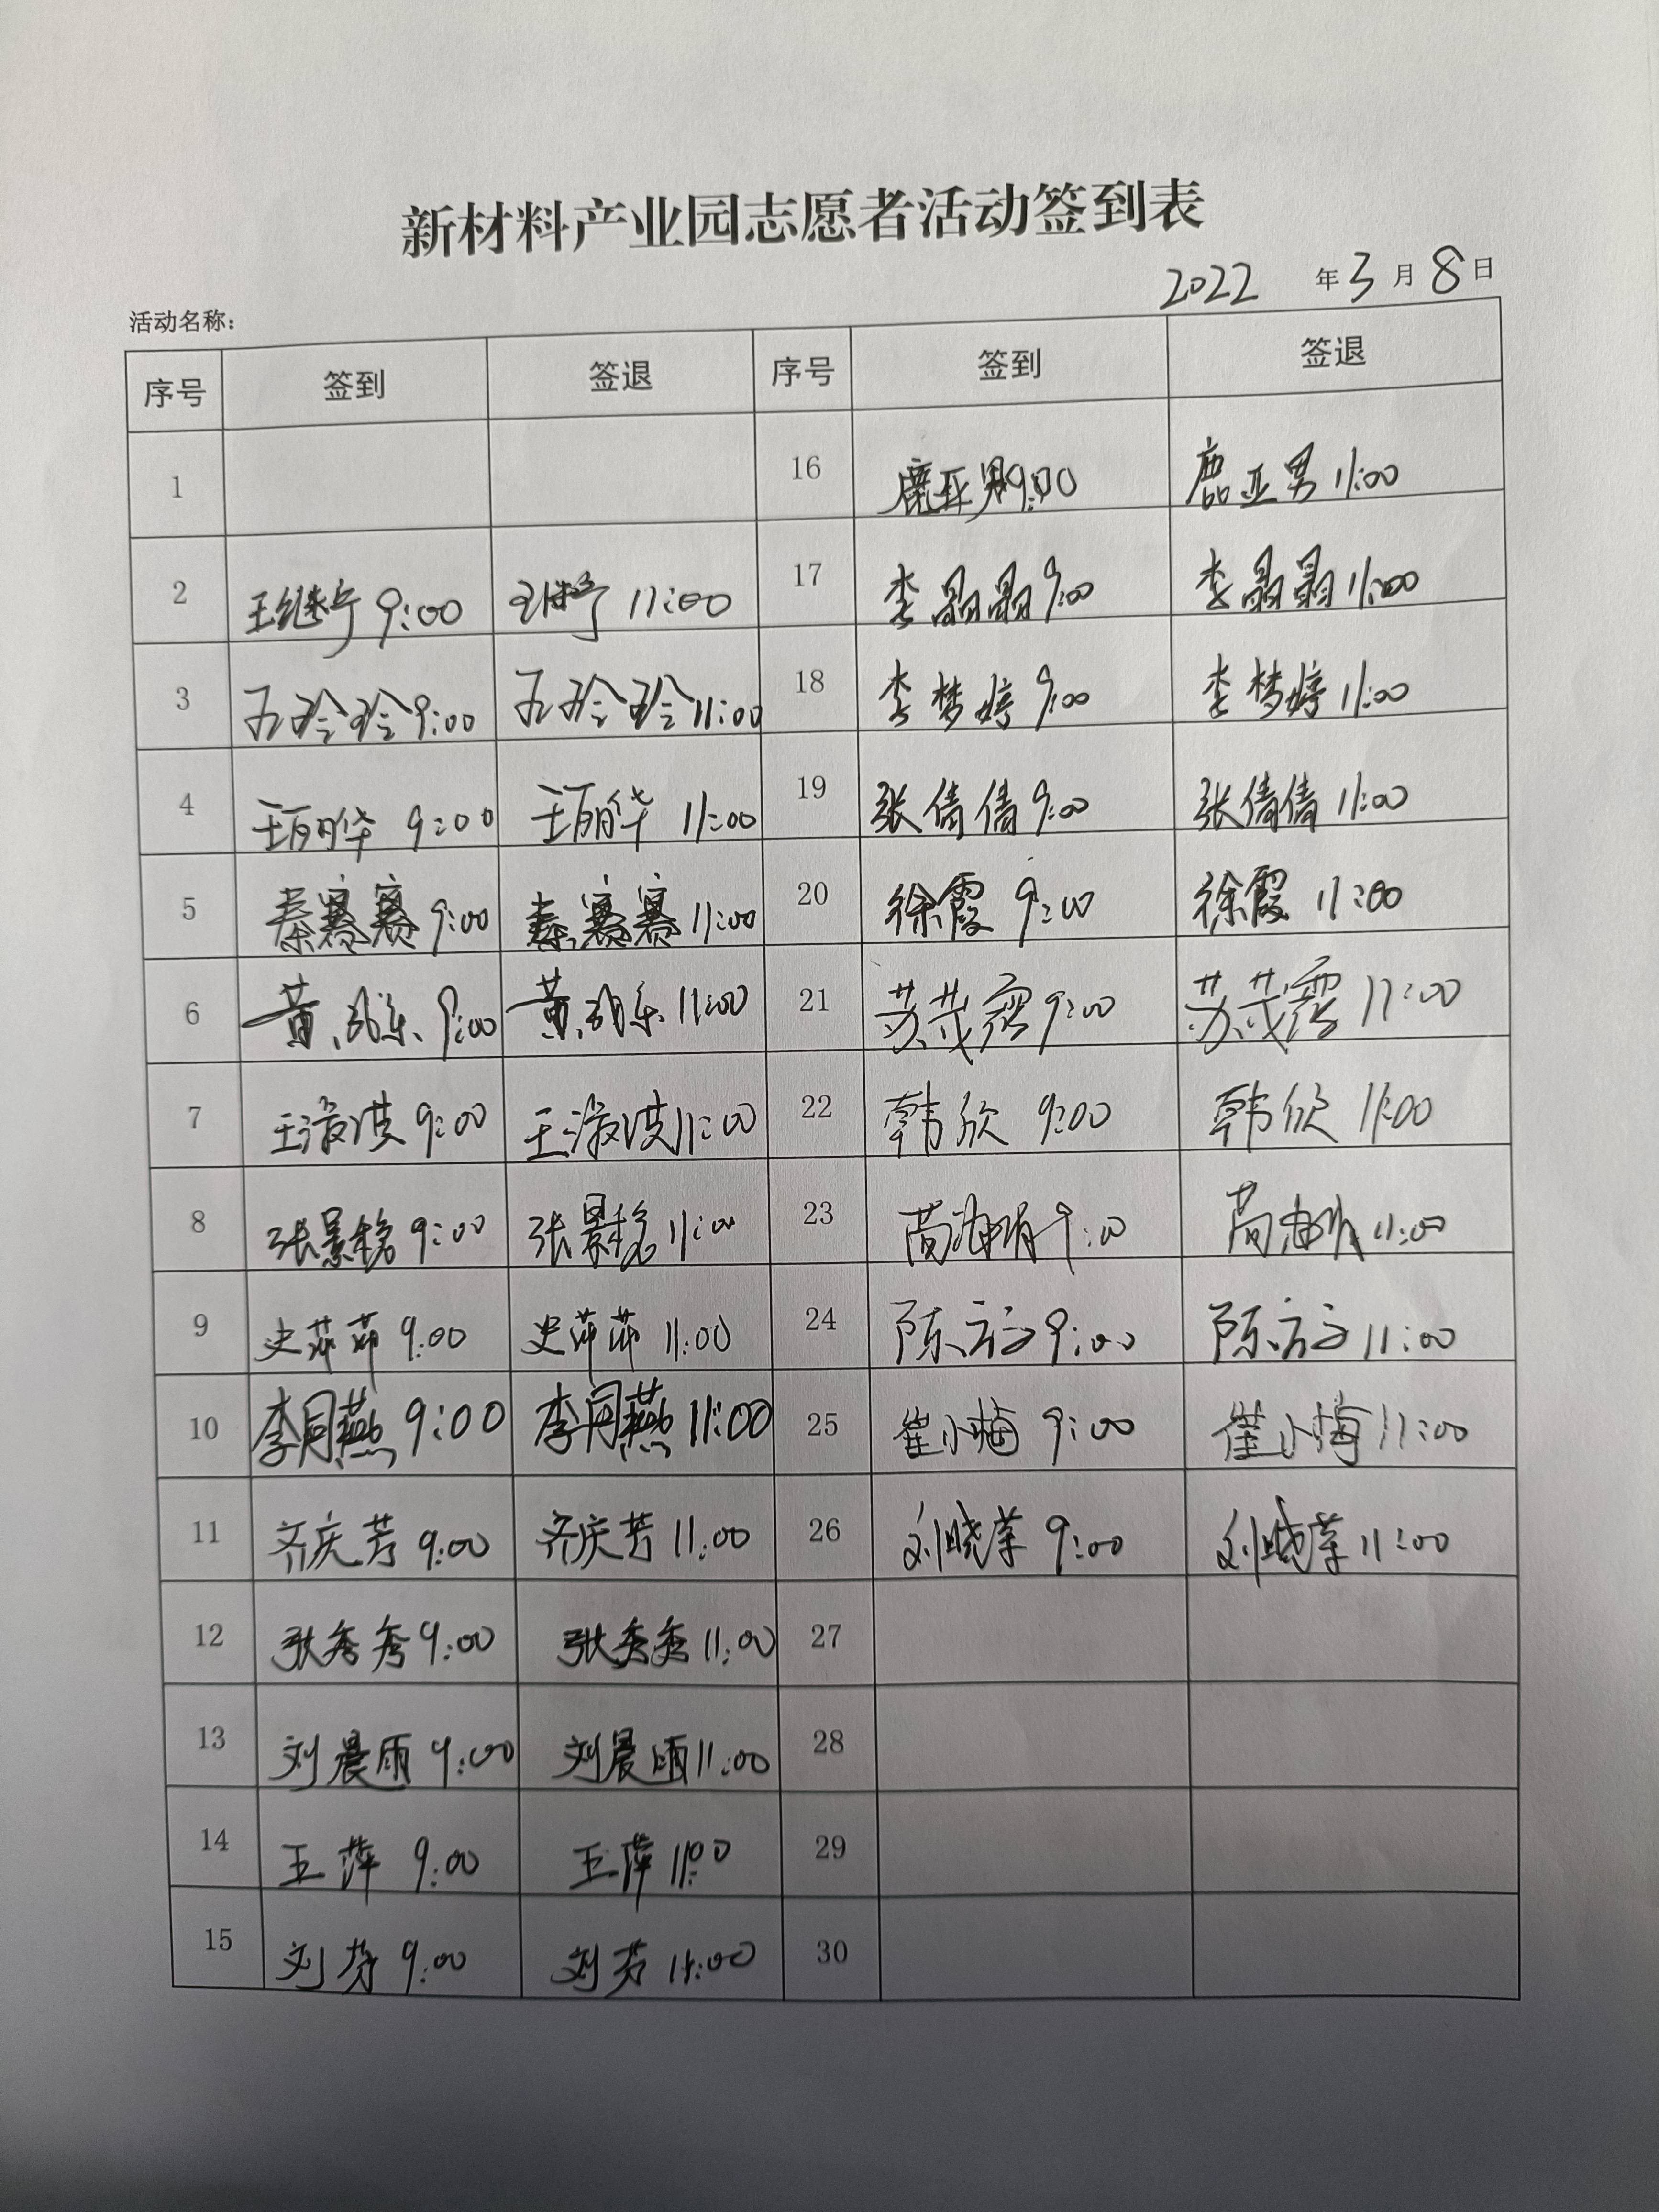 新材料产业园志愿者活动签到表
2022 年 3 月 8 日
活动名称：
序号 签到 签退 序号 签到 签退
1 16 鹿亚男 9:00 鹿亚男 11:00
2 王继宁 9:00 王继宁 11:00 17 李晶晶 9:00 李晶晶 11:00
3 玲玲 9:00 玲玲 11:00 18 李梦婷 9:00 李梦婷 11:00
4 王丽华 9:00 王丽华 11:00 19 张倩倩 9:00 张倩倩 11:00
5 秦赛赛 9:00 秦赛赛 11:00 20 徐霞 9:00 徐霞 11:00
6 黄 9:00 黄 11:00 21 苏茂露 9:00 苏茂露 11:00
7 王淑淇 9:00 王淑淇 11:00 22 韩欣 9:00 韩欣 11:00
8 张景 9:00 张景 11:00 23 9:00 11:00
9 史萍萍 9:00 史萍萍 11:00 24 陈 9:00 陈 11:00
10 李同燕 9:00 李同燕 11:00 25 崔小梅 9:00 崔小梅 11:00
11 齐庆芳 9:00 齐庆芳 11:00 26 刘晓荣 9:00 刘晓荣 11:00
12 张秀秀 9:00 张秀秀 11:00 27
13 刘晨雨 9:00 刘晨雨 11:00 28
14 王萍 9:00 王萍 11:00 29
15 刘芳 9:00 刘芳 11:00 30